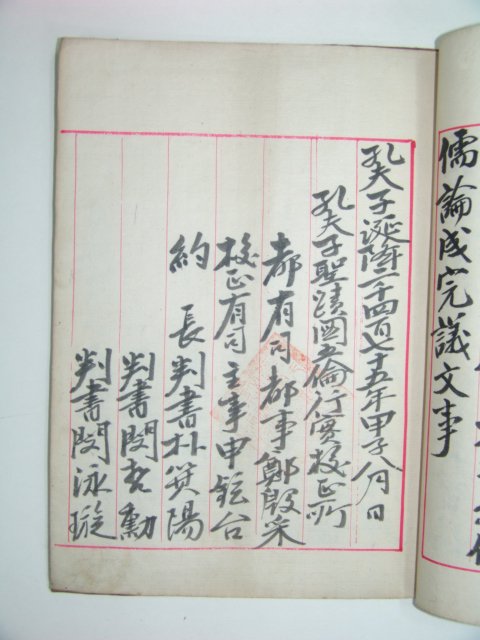 儒論成完議文事
孔夫子誕降二千四百七十五年甲子八月 日
孔夫子聖蹟圖五倫行實校正所
都有司 都事 鄭殷采
校正有司 主事 申鉉台
約長 判書 朴箕陽
判書 閔 勳
判書 閔泳璇